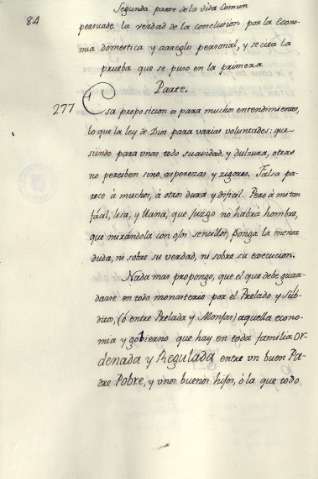 84
Segunda parte de la vida Comun
persuade la verdad de la conclusion por la Econo
mia domestica y arreglo personal, y se cita la
prueba que se puso en la primera
Parte.
277
Esa proposicion es para muchos entendimientos,
lo que la ley de Dios para varias voluntades: que
siendo para unos todo suavidad, y dulzura, otros
no perciben sino, asperezas y rigores. Falsa pa-
rece á muchos, á otros dura y dificil. Pero á mi tan
fácil, lisa, y llana, que juzgo no habrá hombre,
que mirándola con ojos sencillos, ponga la menor
duda, ni sobre su verdad, ni sobre su execucion.
Nada mas propongo, que el que debe guar
darse en todo monasterio por el Prelado y Súb-
ditos, (ó entre Prelada y Monjas) aquella econo-
mia y gobierno que hay en toda familia or
denada y Regulada entre un buen Pa
dre Pobre, y unos buenos hijos, ó la que todo